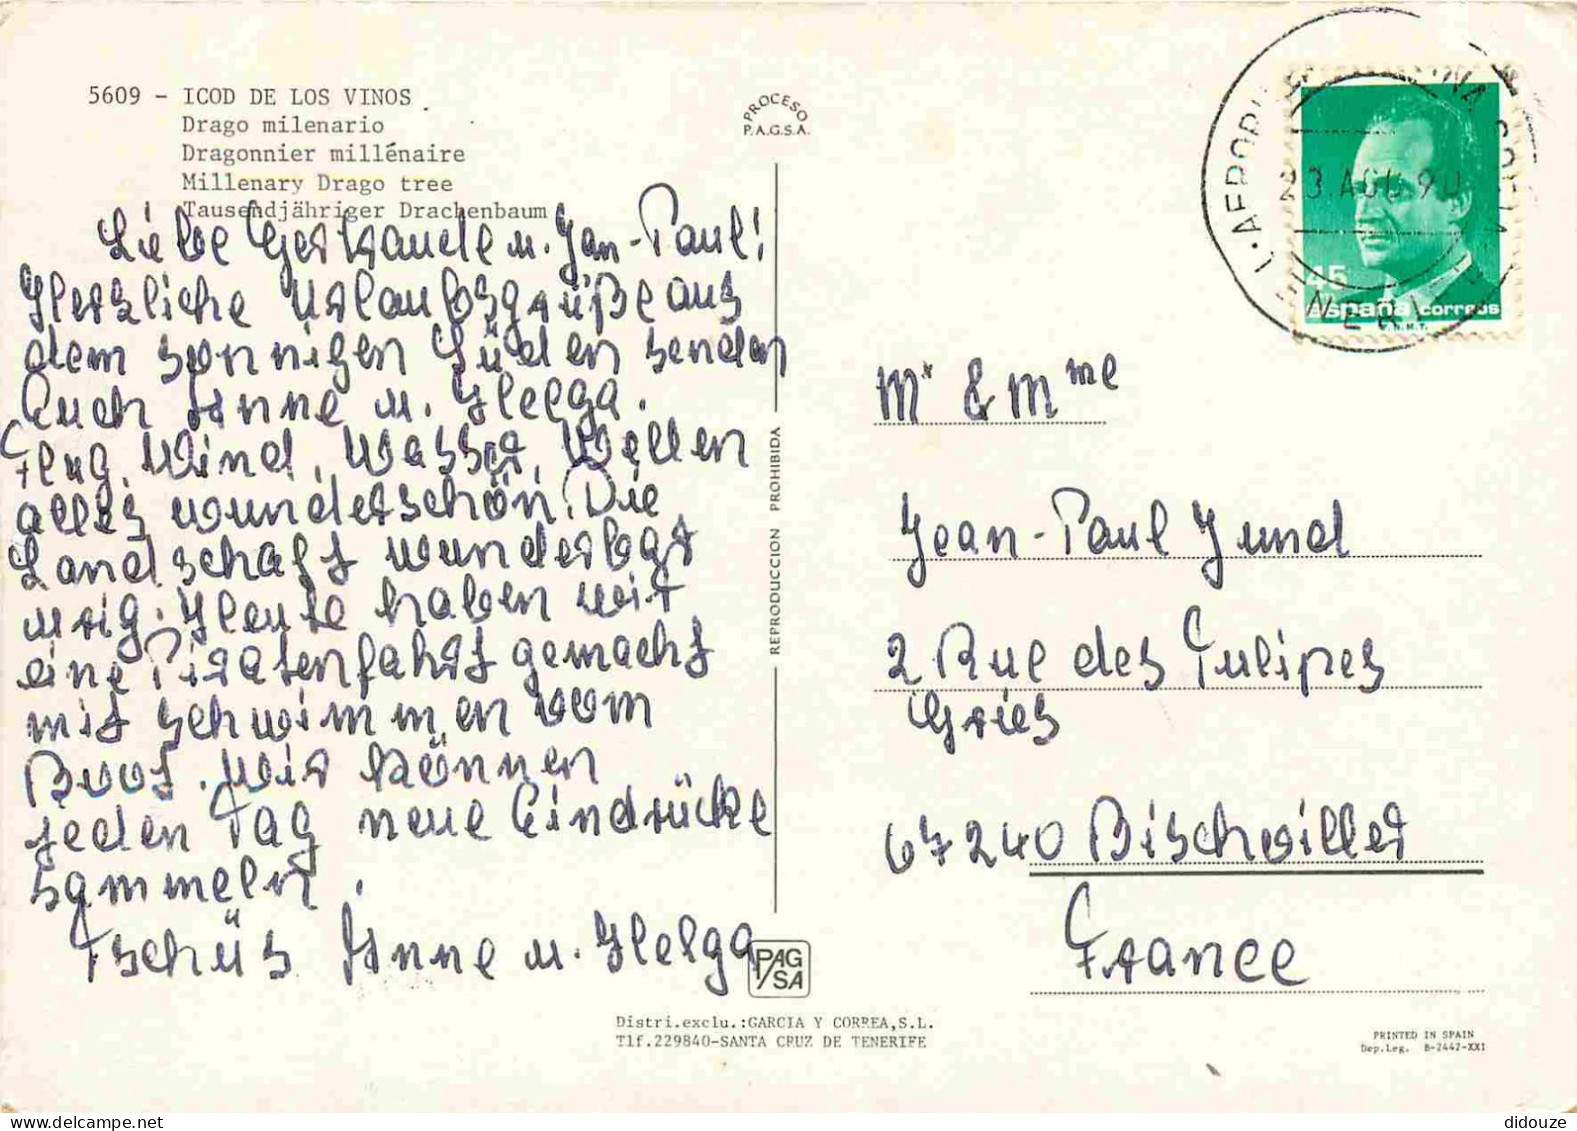 5609 - ICOD DE LOS VINOS
Drago milenario
Dragonnier millénaire
Millenary Drago tree
Tausendjähriger Drachenbaum
PROCESO
P.A.G.S.A.
Liebe Gertraude u. Jan-Paul!
Herzliche Urlaubsgrüße aus
dem sonnigen Süden senden
Euch Anne u. Helga.
Flug, Wind, Wasser, Wellen
alles wunderschön. Die
Landschaft wunderbar
urig. Heute haben wir
eine Piratenfahrt gemacht
mit schwimmen vom
Boot. Wir können
jeden Tag neue Eindrücke
sammeln.
Tschüs Anne u. Helga
REPRODUCCION PROHIBIDA
PAG
SA
Distri.exclu.:GARCIA Y CORREA,S.L.
Tlf.229840-SANTA CRUZ DE TENERIFE
23 AGO 90
45
España correos
F.N.M.T.
Mr & Mme
Jean-Paul Jund
2 Rue des Tulipes
Gries
67240 Bischwiller
France
PRINTED IN SPAIN
Dep.Leg. B-2447-XXI
didouze